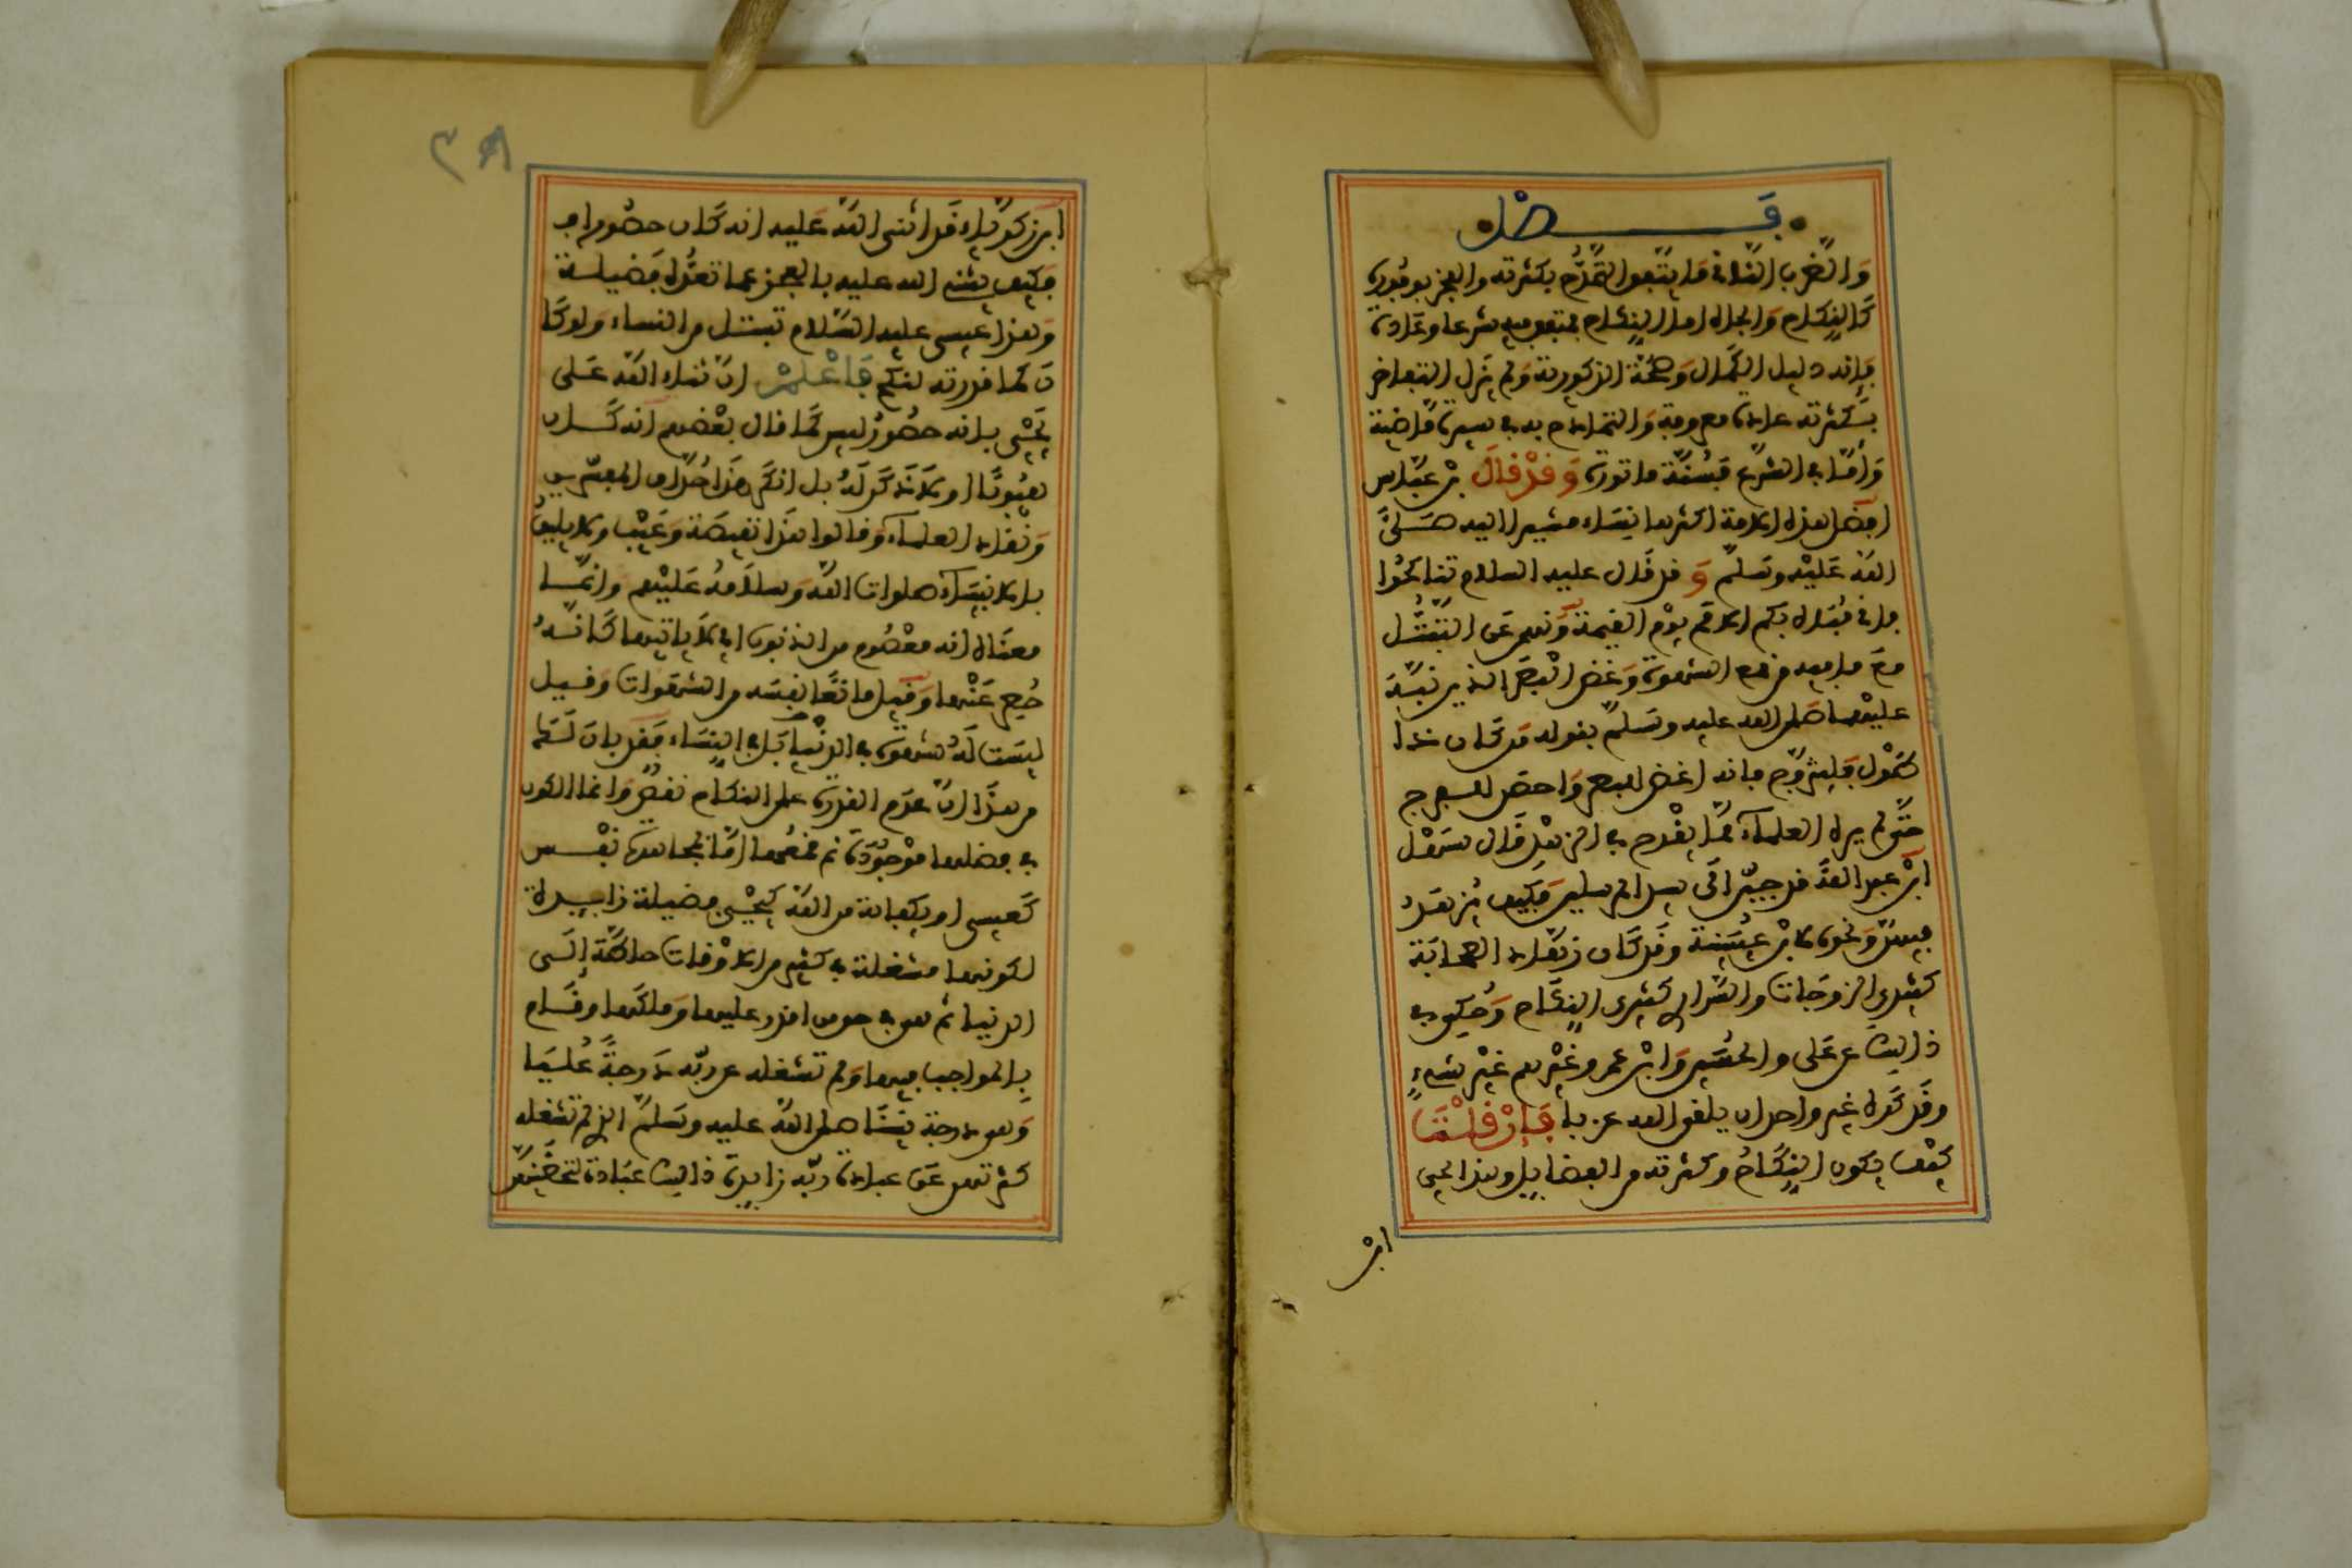 فصل
وَالضرب الثاني ما يتفق التمدح بكثرته والفخر بوفوره
كالنكاح والجاه اما النكاح فمتفق فيه شرعا وعادة
فإنه دليل الكمال وصحة الذكورية ولم يزل التفاخر
بكثرته عادة معروفة والتمادح به سيرة ماضية
وأما في الشرع فسنة ماثورة وقد قال بن عباس
افضل هذه الامة اكثرها نساء مشيرا اليه صلى
الله عليه وسلم وقد قال عليه السلام تناكحوا
فاني مباه بكم الامم يوم القيمة ونهى عن التبتل
مع ما فيه من قمع الشهوة وغض البصر الذين نبه
عليهما صلى الله عليه وسلم بقوله من كان ذا
طول فليتزوج فانه اغض للبصر واحصن للفرج
حتى لم يره العلماء مما يقدح في الزهد قال سهل
ابن عبد الله قد حببن الى سيد المرسلين فكيف يزهد
فيهن ونحوه لابن عيينة وقد كان زهاد الصحابة
كثيري الزوجات والسراري كثيري النكاح وحكي في
ذالك عن علي والحسن وابن عمر وغيرهم غير شيء
وقد كره غير واحد ان يلقى الله عزبا فإن قلت
كيف يكون النكاح وكثرته من الفضايل وهذا يحيى
ابن
٣٨
ابن زكرياء قد اثنى الله عليه انه كان حصورا
فكيف يثني الله عليه بالعجز عما تعده فضيلة
وهذا عيسى عليه السلام تبتل من النساء ولو كا
ن كما قررته لنكح فاعلم ان ثناء الله على
يحيى بانه حصور ليس كما قال بعضهم انه كان
هيوبا او لا ذكر له بل انكر هذا حذاق المفسرين
ونقاد العلماء وقالوا هذا نقيصة وعيب ولا يليق
بالانبياء صلوات الله وسلامه عليهم وانما
معناه انه معصوم من الذنوب اي لا ياتيها كانه
حصر عنها وقيل مانعا نفسه من الشهوات وقيل
ليست له شهوة في النساء فقد بان لك
من هذا ان عدم القدرة على النكاح نقص وانما الكون
في فضلها موجودة ثم قمعها اما بمجاهدة نفس
كعيسى او بكفاية من الله كيحيى فضيلة زايدة
لكونها مشغلة في كثير من الاوقات حاطة إلى
الدنيا ثم هو في حق من اقدر عليها وملكها وقام
بالواجب فيها ولم تشغله عن ربه درجة عليا
وهو درجة نبينا صلى الله عليه وسلم الذي لم تشغله
كثرتهن عن عبادة ربه زايدة ذالك عبادة لتحصينهن